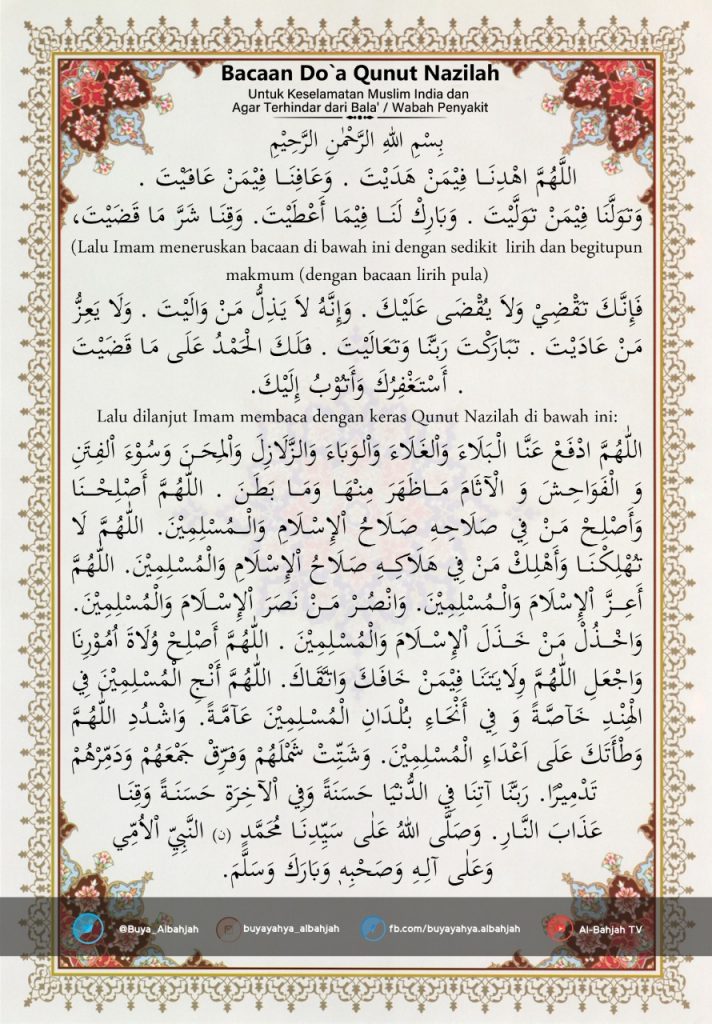 Bacaan Do`a Qunut Nazilah
Untuk Keselamatan Muslim India dan
Agar Terhindar dari Bala' / Wabah Penyakit
بِسْمِ اللهِ الرَّحْمٰنِ الرَّحِيْمِ
اللَّهُمَّ اهْدِنَا فِيْمَنْ هَدَيْتَ . وَعَافِنَا فِيْمَنْ عَافَيْتَ .
وَتَوَلَّنَا فِيْمَنْ تَوَلَّيْتَ . وَبَارِكْ لَنَا فِيْمَا أَعْطَيْتَ. وَقِنَا شَرَّ مَا قَضَيْتَ،
(Lalu Imam meneruskan bacaan di bawah ini dengan sedikit lirih dan begitupun
makmum (dengan bacaan lirih pula)
فَإِنَّكَ تَقْضِيْ وَلاَ يُقْضَى عَلَيْكَ . وَإِنَّهُ لاَ يَذِلُّ مَنْ وَالَيْتَ . وَلَا يَعِزُّ
مَنْ عَادَيْتَ . تَبَارَكْتَ رَبَّنَا وَتَعَالَيْتَ . فَلَكَ الْحَمْدُ عَلَى مَا قَضَيْتَ
. أَسْتَغْفِرُكَ وَأَتُوْبُ إِلَيْكَ.
Lalu dilanjut Imam membaca dengan keras Qunut Nazilah di bawah ini:
اللّٰهُمَّ ادْفَعْ عَنَّا الْبَلَاءَ وَالْغَلَاءَ وَالْوَبَاءَ وَالزَّلَازِلَ وَالْمِحَنَ وَسُوْءَ الْفِتَنِ
وَ الْفَوَاحِشَ وَ الْآثَامَ مَاظَهَرَ مِنْهَا وَمَا بَطَنَ . اللّٰهُمَّ أَصْلِحْنَا
وَأَصْلِحْ مَنْ فِي صَلَاحِهِ صَلَاحُ الْإِسْلَامِ وَالْمُسْلِمِيْنَ. اللّٰهُمَّ لَا
تُهْلِكْنَا وَأَهْلِكْ مَنْ فِي هَلَاكِهِ صَلَاحُ الْإِسْلَامِ وَالْمُسْلِمِيْنَ. اللّٰهُمَّ
أَعِزَّ الْإِسْلَامَ وَالْمُسْلِمِيْنَ. وَانْصُرْ مَنْ نَصَرَ الْإِسْلَامَ وَالْمُسْلِمِيْنَ.
وَاخْذُلْ مَنْ خَذَلَ الْإِسْلَامَ وَالْمُسْلِمِيْنَ . اللّٰهُمَّ أَصْلِحْ وُلَاةَ اُمُوْرِنَا
وَاجْعَلِ اللّٰهُمَّ وِلَايَتَنَا فِيْمَنْ خَافَكَ وَاتَّقَاكَ. اللّٰهُمَّ أَنْجِ الْمُسْلِمِيْنَ فِي
الْهِنْدِ خَآصَّةً وَ فِي أَنْحَاءِ بُلْدَانِ الْمُسْلِمِيْنَ عَآمَّةً. وَاشْدُدِ اللّٰهُمَّ
وَطْأَتَكَ عَلَى اَعْدَاءِ الْمُسْلِمِيْنَ. وَشَتِّتْ شَمْلَهُمْ وَفَرِّقْ جَمْعَهُمْ وَدَمِّرْهُمْ
تَدْمِيْرًا. رَبَّنَا آتِنَا فِي الدُّنْيَا حَسَنَةً وَفِي الْآخِرَةِ حَسَنَةً وَقِنَا
عَذَابَ النَّارِ. وَصَلَّى اللهُ عَلٰى سَيِّدِنَا مُحَمَّدٍ (نِ) النَّبِيِّ الْأُمِّي
وَعَلٰى آلِهِ وَصَحْبِهِ وَبَارَكَ وَسَلَّمَ.
@Buya_Albahjah buyayahya_albahjah fb.com/buyayahya.albahjah Al-Bahjah TV